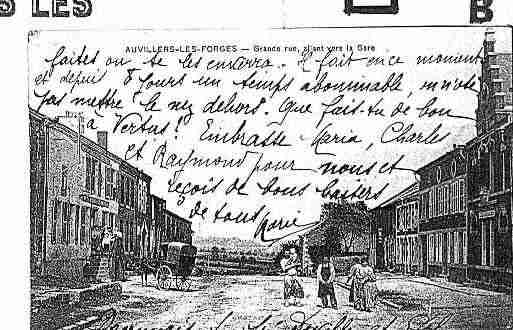 S LES
B
AUVILLERS-LES-FORGES — Grande rue, allant vers la Gare
faites on te les enverra. Il fait en ce moment
et depuis 8 jours un temps abominable, on n'ose
pas mettre le nez dehors. Que fait-tu de bon
à Vertus? Embrasse Maria, Charles
et Raymond pour nous et
reçois de bons baisers
de tous
Marie